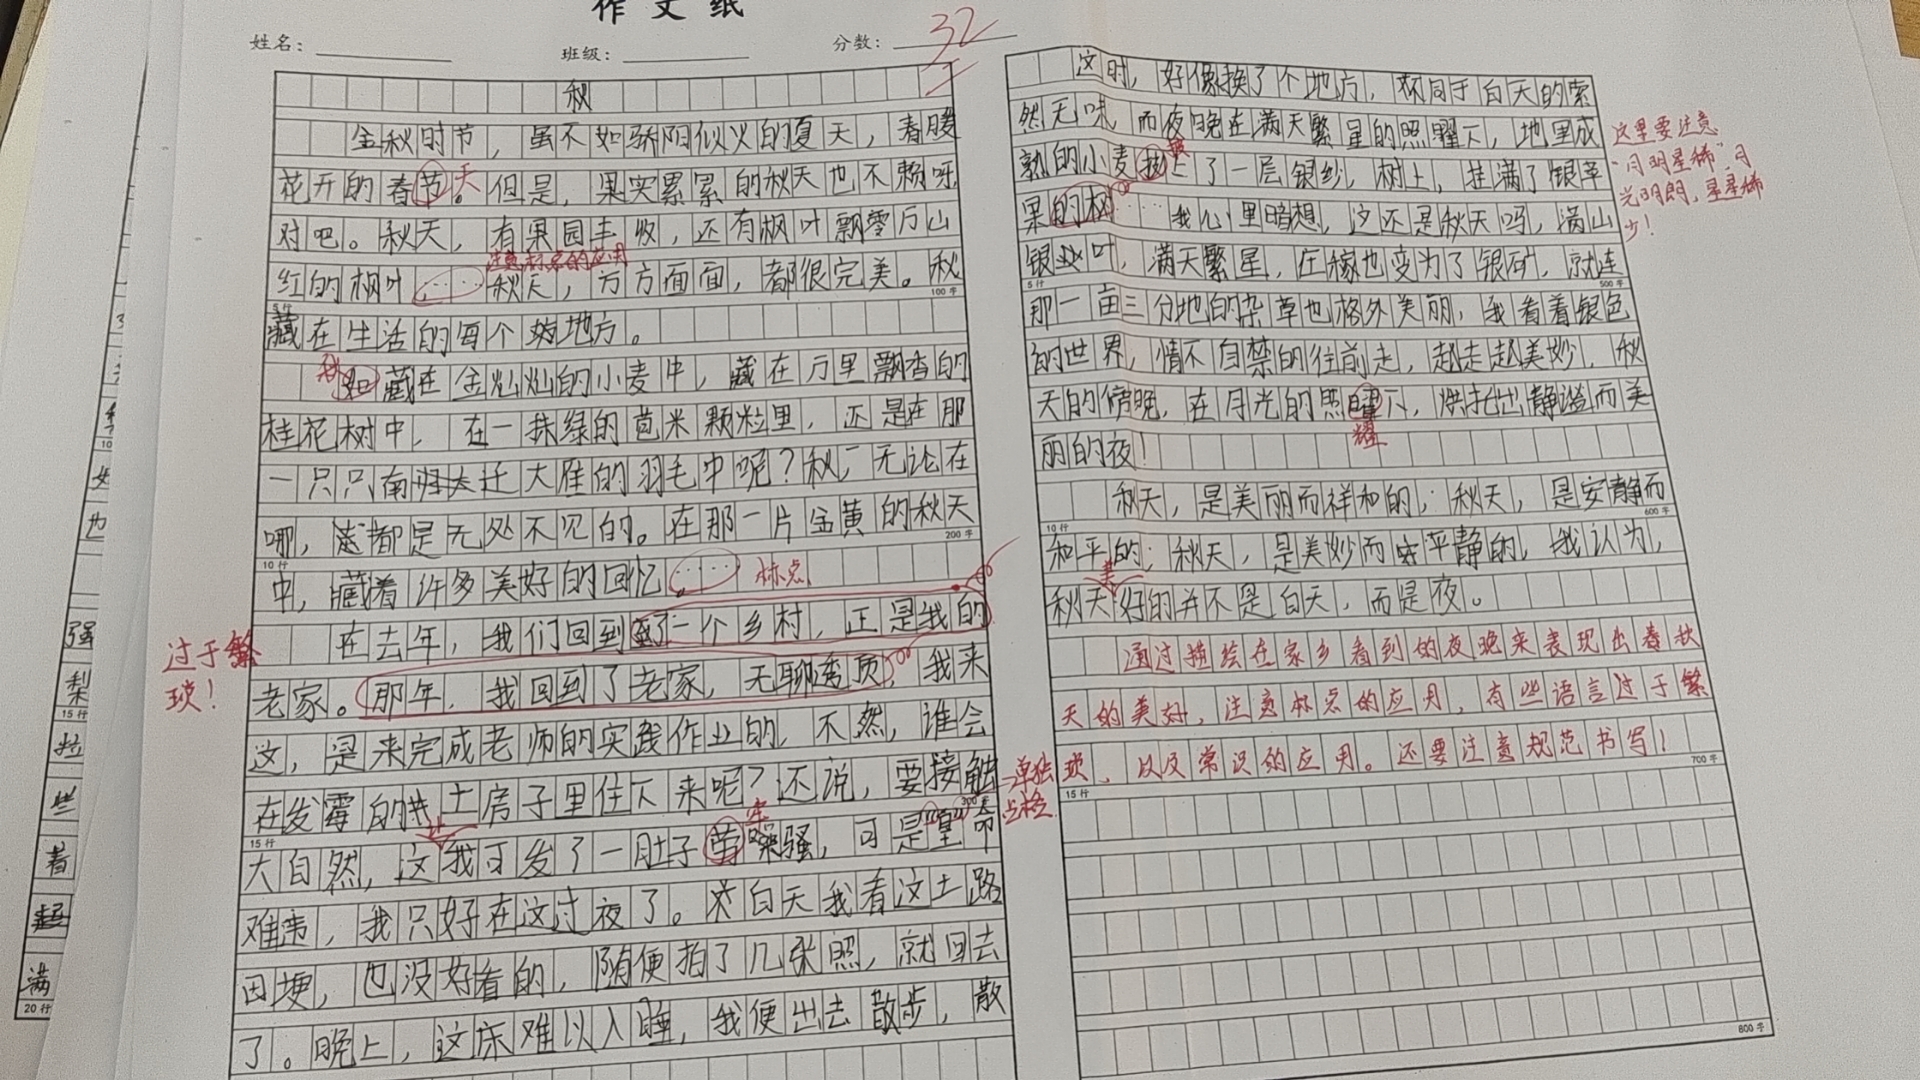 作文纸
姓名：
班级：
分数：
32
秋
金秋时节，虽不如骄阳似火的夏天，春暖
花开的春节。但是，果实累累的秋天也不赖呀，
天
对吧。秋天，有果园丰收，还有枫叶飘零万山
注意标点的应用
红的枫叶，……秋天，方方面面，都很完美。秋
100字
5行
藏在生活的每个地方。
秋
藏在金灿灿的小麦中，藏在万里飘香的
桂花树中，在一抹绿的苞米颗粒里，还是在那
一只只南迁大雁的羽毛中呢？秋，无论在
哪，都是无处不见的。在那一片金黄的秋天
200字
10行
中，藏着许多美好的回忆，……
标点
在去年，我们回到了一个乡村，正是我的
过于繁
琐！
老家。那年，我回到了老家，无聊透顶，我来
这，是来完成老师的实践作业的，不然，谁会
在发霉的土房子里住下来呢？还说，要接触
单独
占格
300字
15行
大自然，这我可发了一肚子噪骚，可是"皇命
牢
难违，我只好在这过夜了。白天我看这土路
田埂，也没好看的，随便拍了几张照，就回去
了。晚上，这床难以入睡，我便出去散步，散
这时，好像换了个地方，不同于白天的索
然无味，而夜晚在满天繁星的照耀下，地里成
熟的小麦披上了一层银纱，树上，挂满了银苹
披
果的树……我心里暗想，这还是秋天吗，满山
这里要注意
"月明星稀"，月
光明朗，星星稀
少！
银叶，满天繁星，庄稼也变为了银矿，就连
500字
5行
那一亩三分地的杂草也格外美丽，我看着银色
的世界，情不自禁的往前走，越走越美妙，秋
天的傍晚，在月光的照曜下，烘托出静谧而美
耀
丽的夜！
秋天，是美丽而祥和的；秋天，是安静而
600字
10行
和平的；秋天，是美妙而平静的，我认为，
美
秋天好的并不是白天，而是夜。
通过描绘在家乡看到的夜晚来表现出春秋
天的美好，注意标点的应用，有些语言过于繁
琐，以及常识的应用。还要注意规范书写！
700字
15行
800字
强
梨
15行
拉
些
着
满
20行